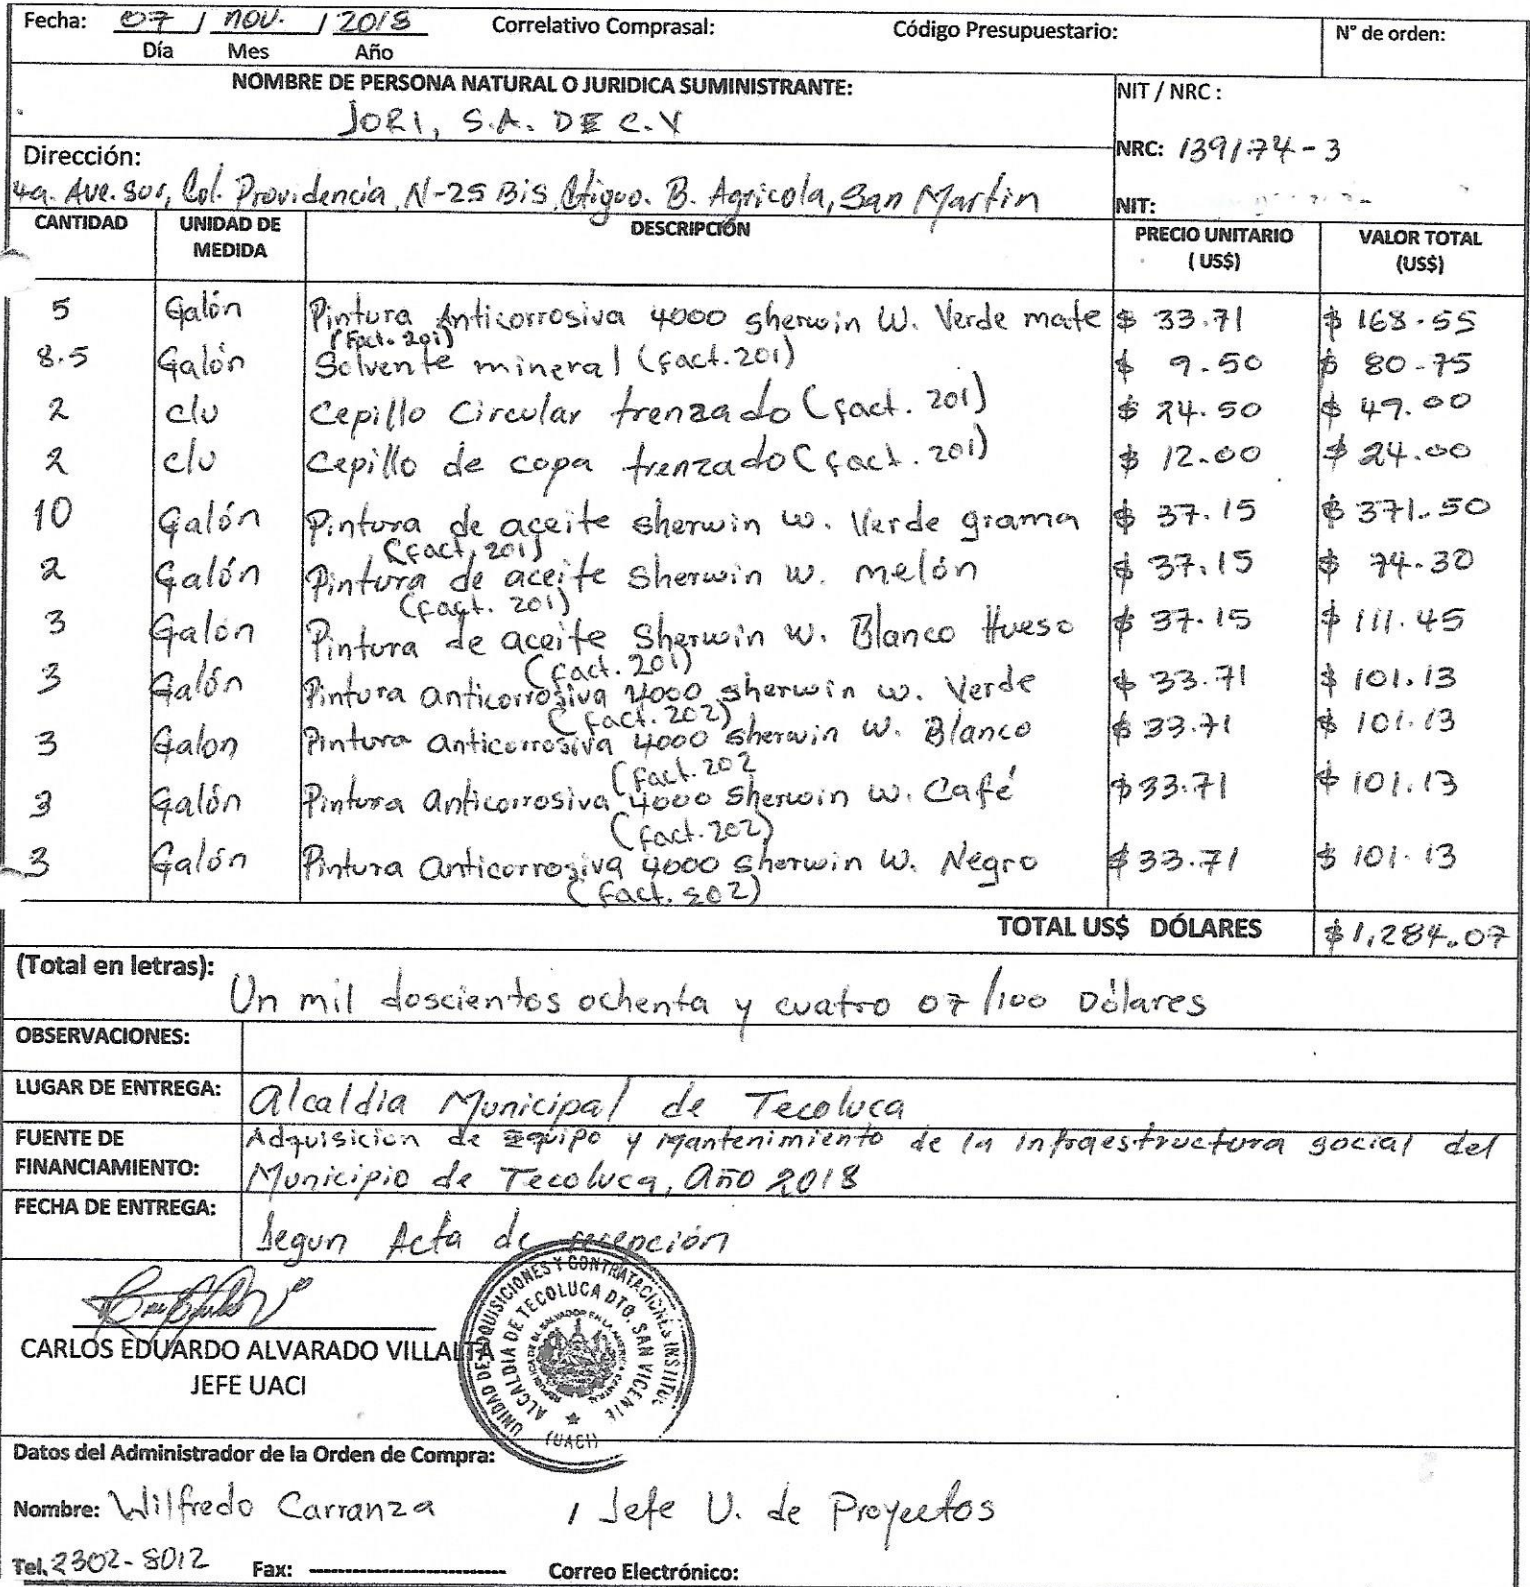 Fecha: 07 / nov. / 2018 Correlativo Comprasal: Código Presupuestario: N° de orden:
Día Mes Año
NOMBRE DE PERSONA NATURAL O JURIDICA SUMINISTRANTE: NIT / NRC :
JORI, S.A. DE C.V
NRC: 139174-3
Dirección:
4a. Ave. Sur, Col. Providencia, N-25 Bis, Ctiguo. B. Agricola, San Martin
NIT:
CANTIDAD UNIDAD DE MEDIDA DESCRIPCIÓN PRECIO UNITARIO ( US$) VALOR TOTAL (US$)
5 Galón Pintura Anticorrosiva 4000 sherwin W. Verde mate $ 33.71 $ 168.55
(Fact. 201)
8.5 Galón Solvente mineral (fact. 201) $ 9.50 $ 80.75
2 c/u Cepillo Circular trenzado (fact. 201) $ 24.50 $ 49.00
2 c/u Cepillo de copa trenzado (fact. 201) $ 12.00 $ 24.00
10 Galón Pintura de aceite sherwin w. Verde grama $ 37.15 $ 371.50
(fact. 201)
2 Galón Pintura de aceite Sherwin w. melón $ 37.15 $ 74.30
(fact. 201)
3 Galón Pintura de aceite Sherwin w. Blanco Hueso $ 37.15 $ 111.45
(fact. 201)
3 Galón Pintura anticorrosiva 4000 sherwin w. Verde $ 33.71 $ 101.13
(fact. 202)
3 Galon Pintura anticorrosiva 4000 sherwin W. Blanco $ 33.71 $ 101.13
(fact. 202
3 Galón Pintura anticorrosiva 4000 sherwin w. Café $33.71 $ 101.13
(fact. 202)
3 Galón Pintura anticorrosiva 4000 sherwin W. Negro $33.71 $ 101.13
(fact. 202)
TOTAL US$ DÓLARES $1,284.07
(Total en letras):
Un mil doscientos ochenta y cuatro 07/100 Dólares
OBSERVACIONES:
LUGAR DE ENTREGA: Alcaldia Municipal de Tecoluca
FUENTE DE FINANCIAMIENTO: Adquisicion de Equipo y Mantenimiento de la infraestructura social del
Municipio de Tecoluca, Año 2018
FECHA DE ENTREGA: Segun Acta de recepción
UNIDAD DE ADQUISICIONES Y CONTRATACIONES INSTITUC
ALCALDIA DE TECOLUCA DTO. SAN VICENTE
REPUBLICA DE EL SALVADOR EN LA AMERICA CENTRAL
(UACI)
CARLOS EDUARDO ALVARADO VILLALTA
JEFE UACI
Datos del Administrador de la Orden de Compra:
Nombre: Wilfredo Carranza / Jefe U. de Proyectos
Tel. 2302-8012 Fax: ---------------------- Correo Electrónico: